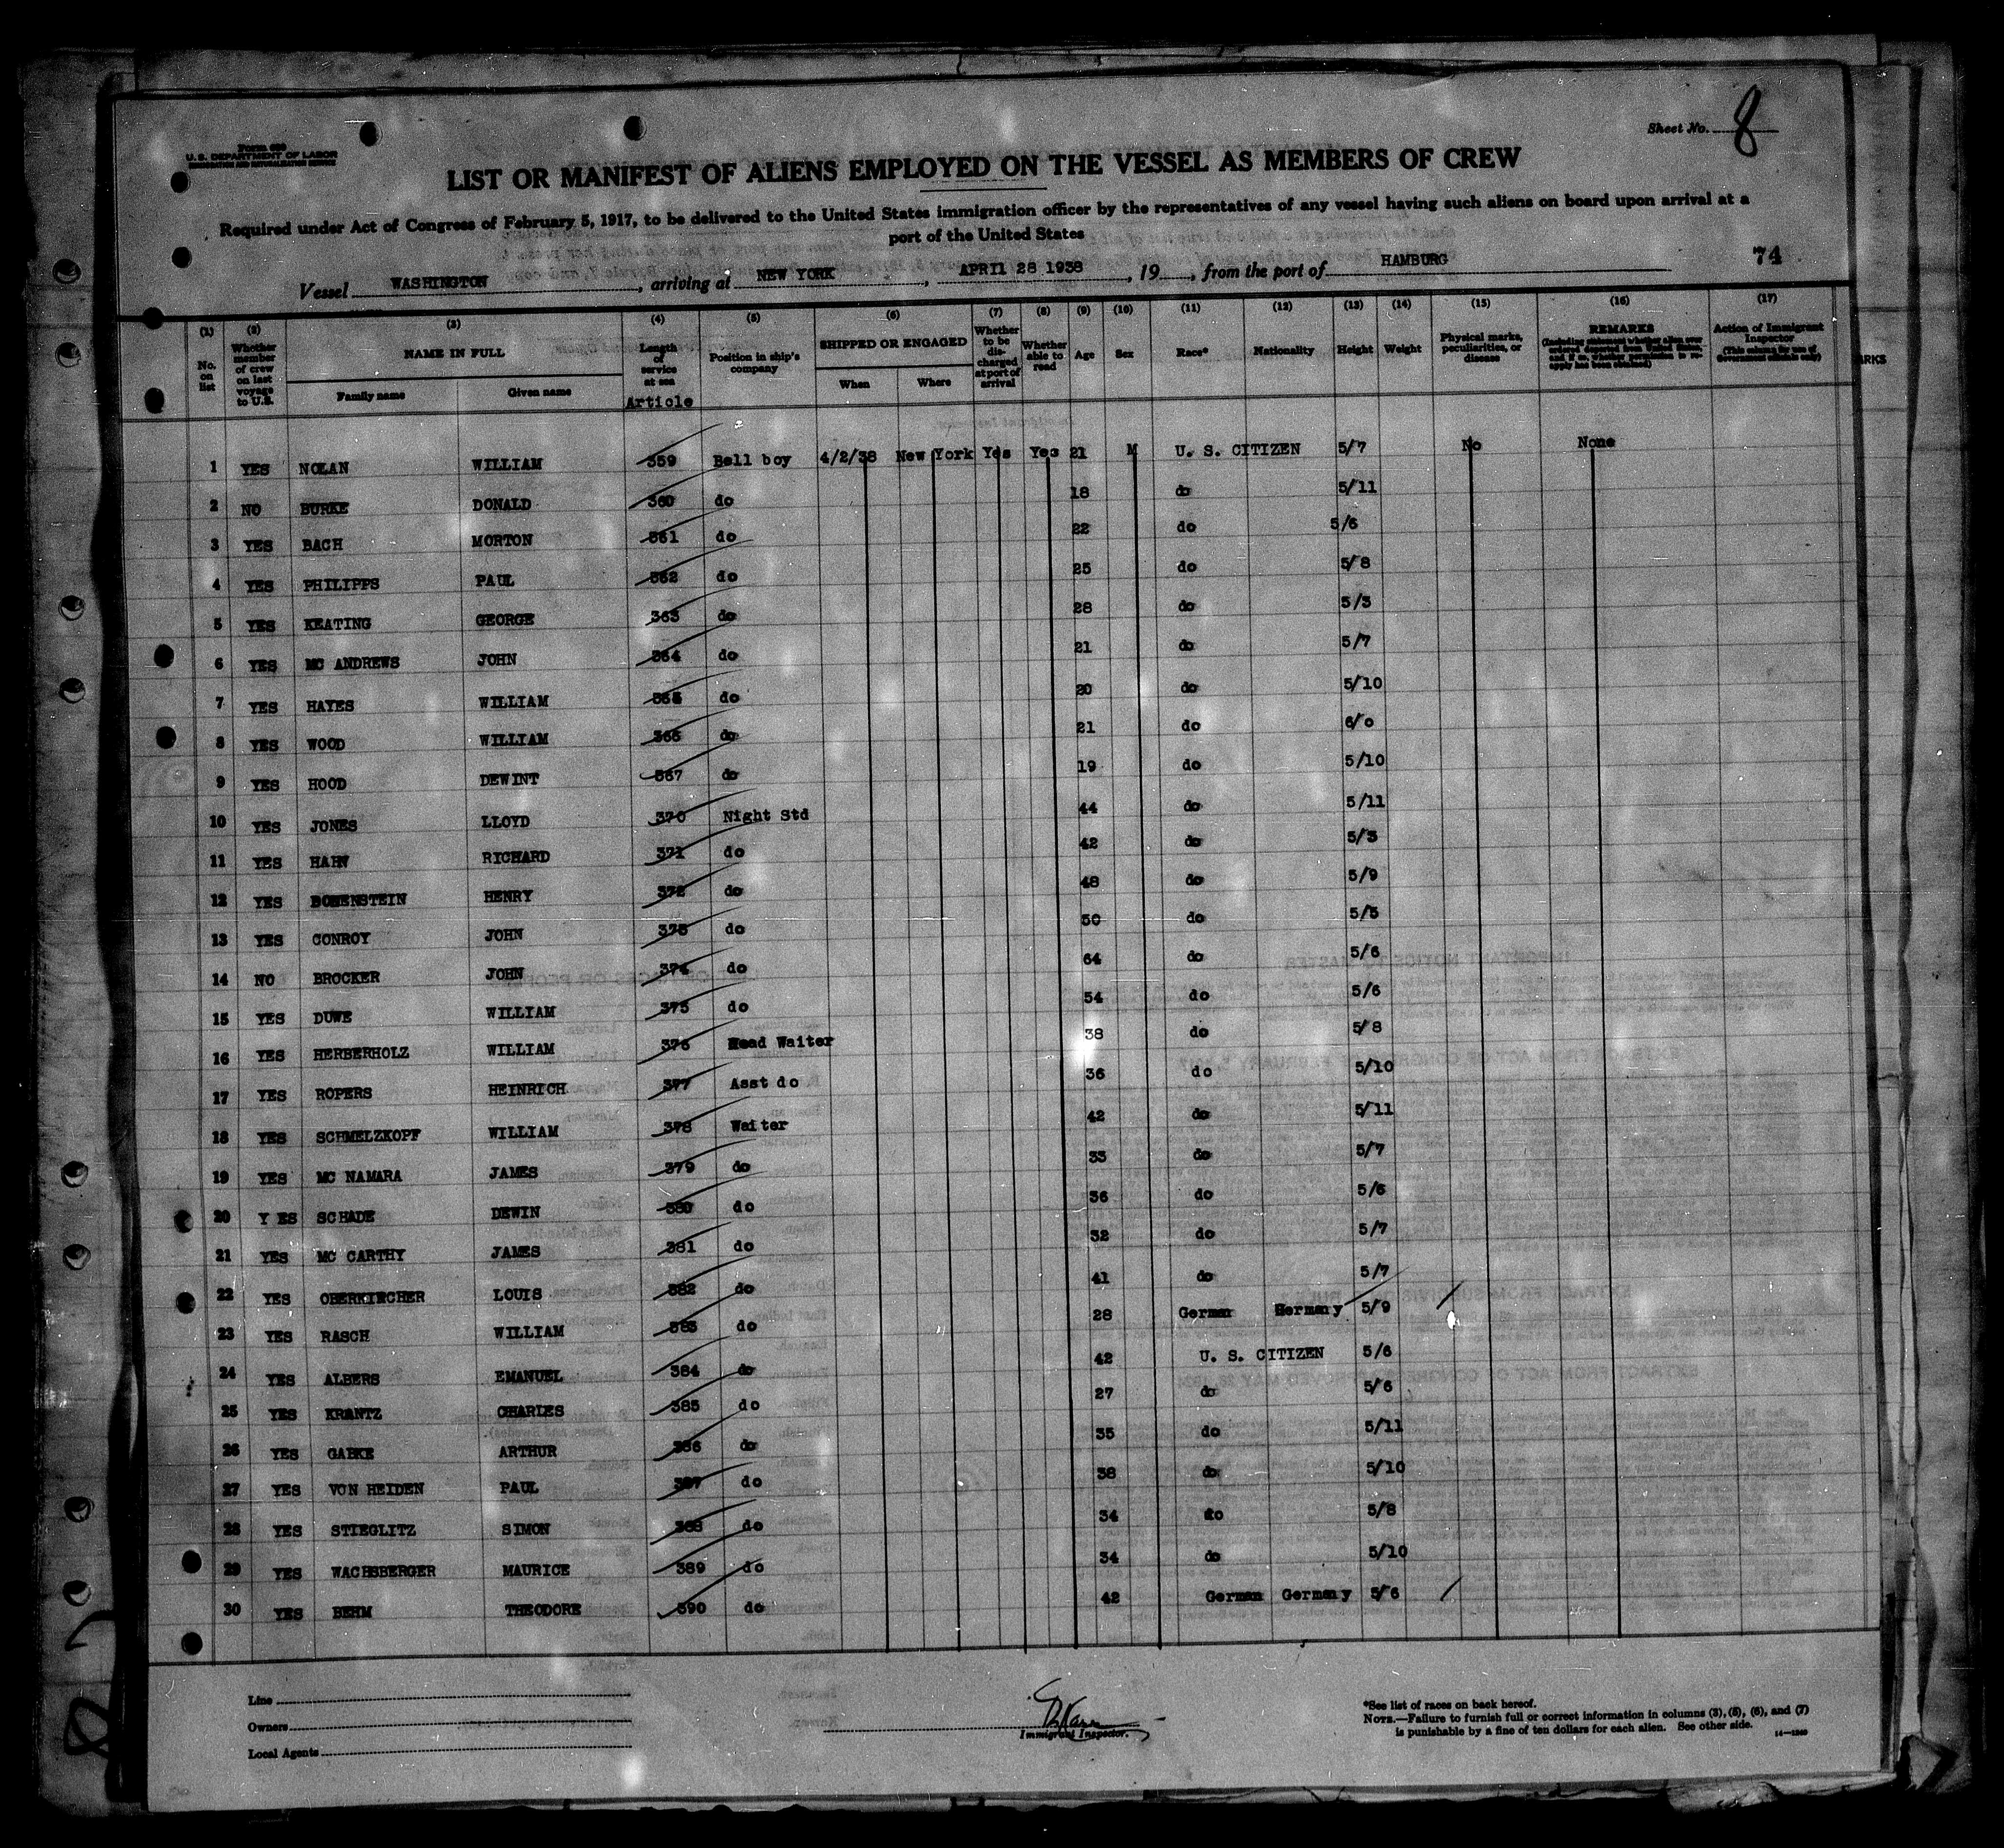 Sheet No. 8
Form 689
U. S. DEPARTMENT OF LABOR
LIST OR MANIFEST OF ALIENS EMPLOYED ON THE VESSEL AS MEMBERS OF CREW
Required under Act of Congress of February 5, 1917, to be delivered to the United States immigration officer by the representatives of any vessel having such aliens on board upon arrival at a
port of the United States
74
Vessel WASHINGTON, arriving at NEW YORK, APRIL 28 1938, 19, from the port of HAMBURG
(1) (2) (3) (4) (5) (6) (7) (8) (9) (10) (11) (12) (13) (14) (15) (16) (17)
No. on list
Whether member of crew on last voyage to U.S.
NAME IN FULL
Family name Given name
Length of service at sea
Article
Position in ship's company
SHIPPED OR ENGAGED
When Where
Whether to be discharged at port of arrival
Whether able to read
Age Sex Race* Nationality Height Weight
Physical marks, peculiarities, or disease
REMARKS
Action of Immigrant Inspector
1 YES NOLAN WILLIAM 359 Bell boy 4/2/38 New York Yes Yes 21 M U. S. CITIZEN 5/7 No None
2 NO BURKE DONALD 360 do 18 do 5/11
3 YES BACH MORTON 361 do 22 do 5/6
4 YES PHILIPPS PAUL 362 do 25 do 5/8
5 YES KEATING GEORGE 363 do 28 do 5/3
6 YES MC ANDREWS JOHN 364 do 21 do 5/7
7 YES HAYES WILLIAM 365 do 20 do 5/10
8 YES WOOD WILLIAM 366 do 21 do 6/0
9 YES HOOD DEWINT 367 do 19 do 5/10
10 YES JONES LLOYD 370 Night Std 44 do 5/11
11 YES HAHN RICHARD 371 do 42 do 5/3
12 YES HENRY 372 do 48 do 5/9
13 YES CONROY JOHN 373 do 50 do 5/5
14 NO BROCKER JOHN 374 do 64 do 5/6
15 YES DUWE WILLIAM 375 do 54 do 5/6
16 YES HERBERHOLZ WILLIAM 376 Head Waiter 38 do 5/8
17 YES ROPERS HEINRICH 377 Asst do 36 do 5/10
18 YES SCHMELZKOPF WILLIAM 378 Waiter 42 do 5/11
19 YES MC NAMARA JAMES 379 do 33 do 5/7
20 Y ES SCHADE DEWIN 380 do 36 do 5/6
21 YES MC CARTHY JAMES 381 do 32 do 5/7
22 YES OBERKIRCHER LOUIS 382 do 41 do 5/7
23 YES RASCH WILLIAM 383 do 28 German Germany 5/9
24 YES ALBERS EMANUEL 384 do 42 U. S. CITIZEN 5/6
25 YES KRANTZ CHARLES 385 do 27 do 5/6
26 YES GABKE ARTHUR 386 do 35 do 5/11
27 YES VON HEIDEN PAUL 387 do 38 do 5/10
28 YES STIEGLITZ SIMON 388 do 34 do 5/8
29 YES WACHSBERGER MAURICE 389 do 34 do 5/10
30 YES BEHM THEODORE 390 do 42 German Germany 5/6
Line
Owners
Local Agents
Immigrant Inspector.
*See list of races on back hereof.
NOTE.—Failure to furnish full or correct information in columns (3), (5), (6), and (7)
is punishable by a fine of ten dollars for each alien. See other side.
14—1240